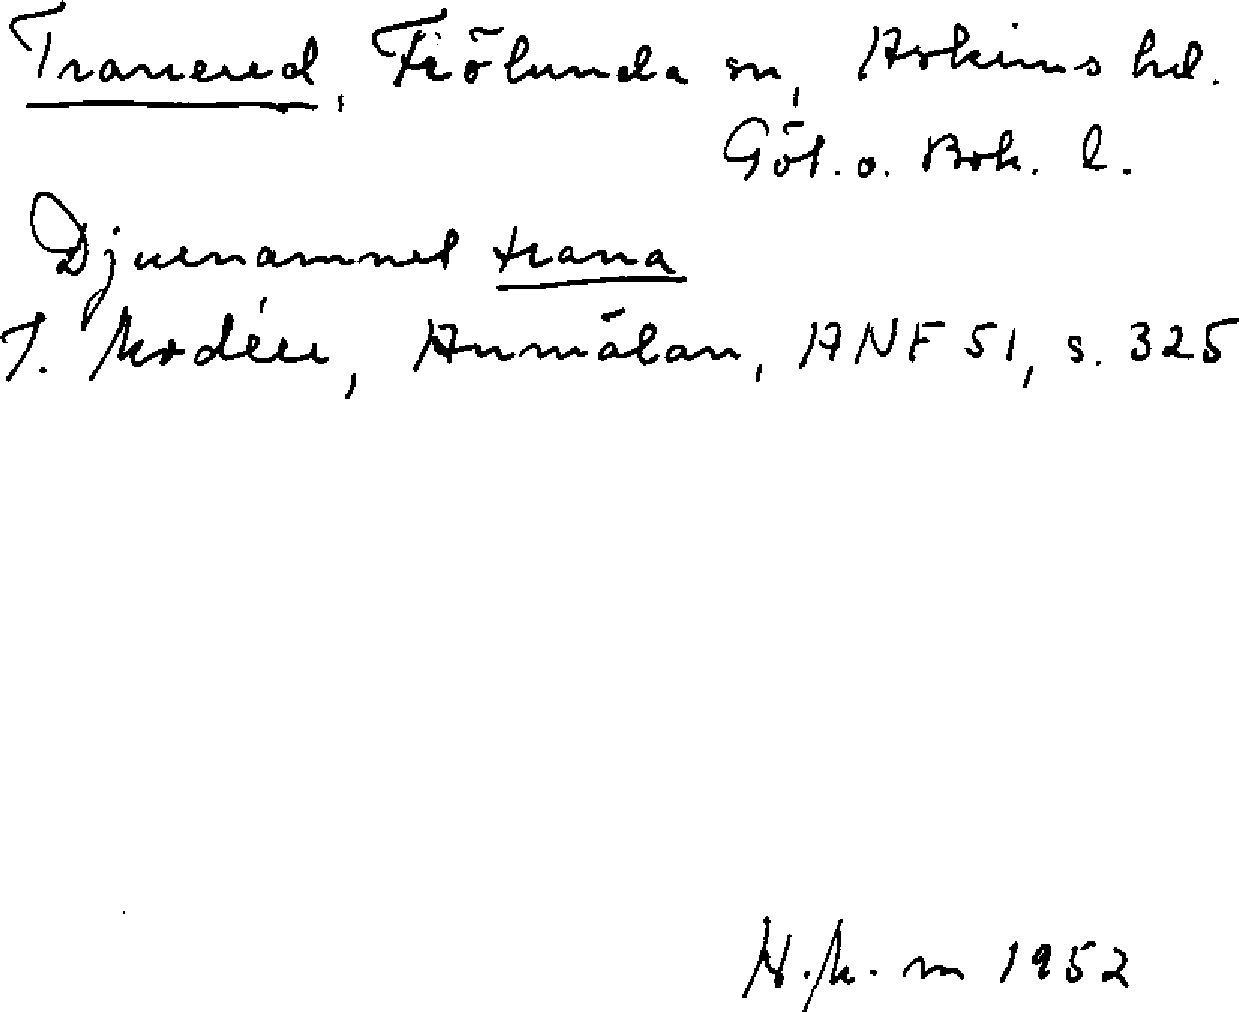 Tranered, Frölunda sn, Askims hd.
Göt. o. Boh. l.
Djurnamnet trana
I. Modéer, Anmälan, ANF 51, s. 325
1952